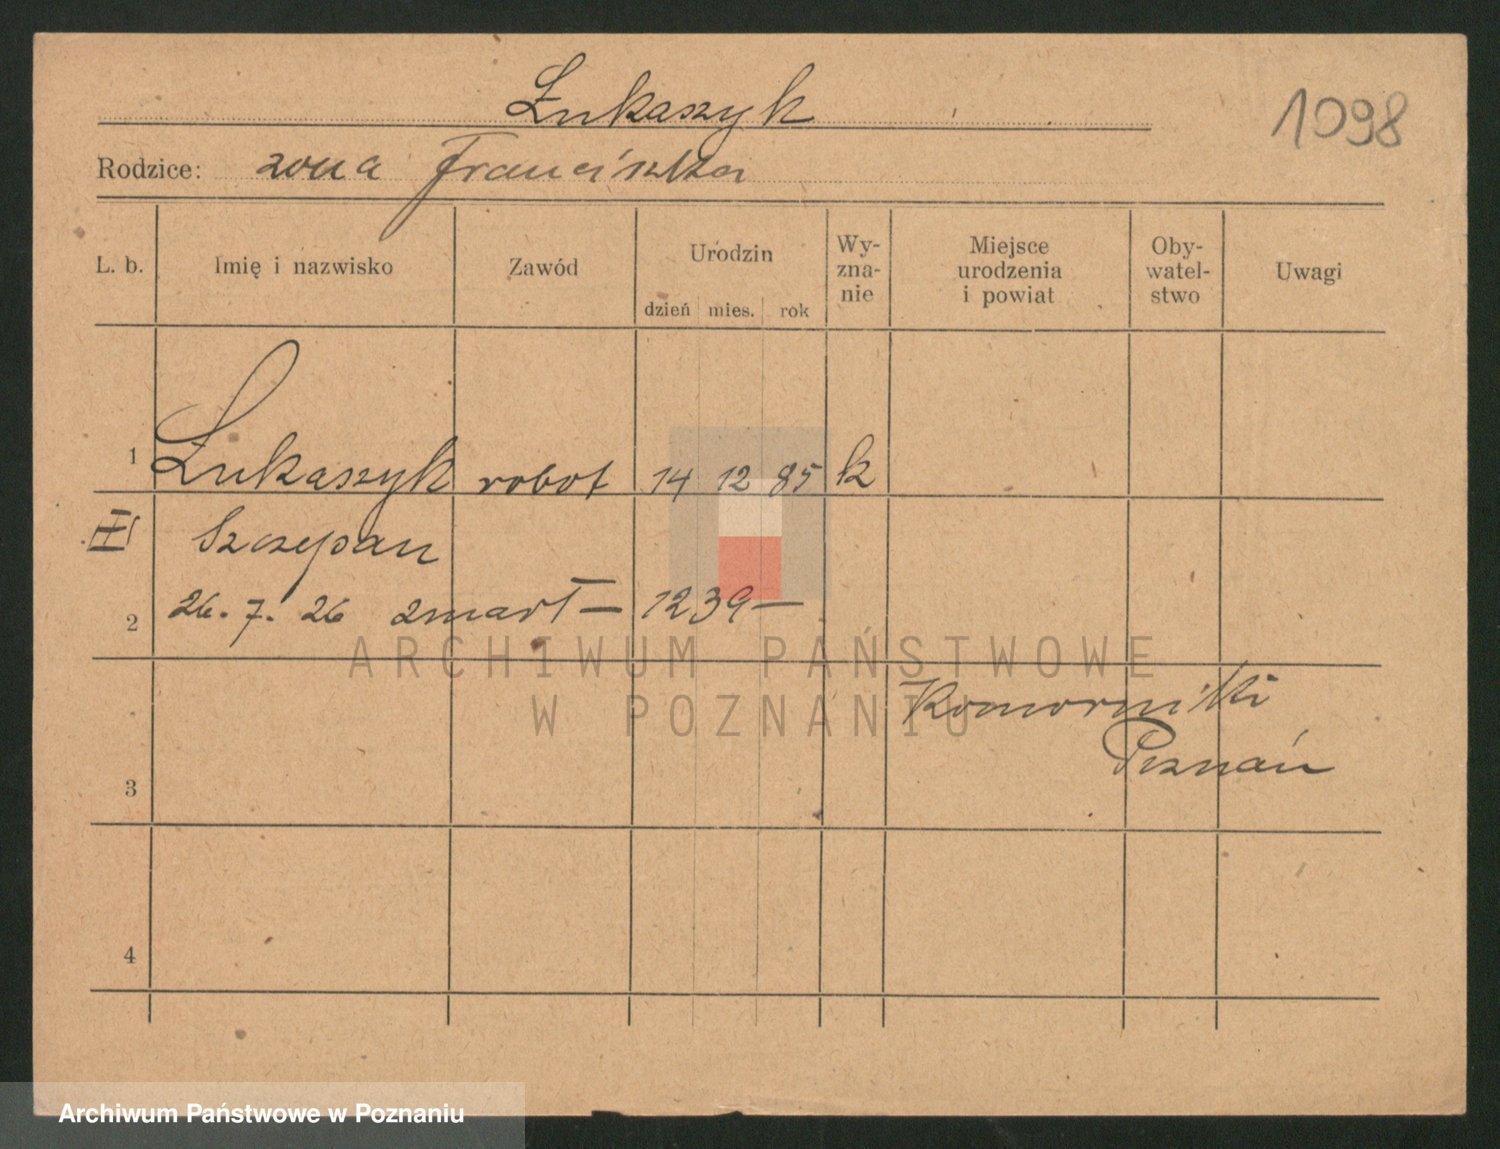 Łukaszyk
1098
Rodzice: żona Franciszka
L. b. Imię i nazwisko Zawód Urodzin dzień mies. rok Wy-zna-nie Miejsce urodzenia i powiat Oby-watel-stwo Uwagi
1 Łukaszyk robot 14 12 85 k
Szczepan
2 26. 7. 26 zmarł — 1239 —
ARCHIWUM PAŃSTWOWE
W POZNANIU
Komorniki
Poznań
3
4
Archiwum Państwowe w Poznaniu